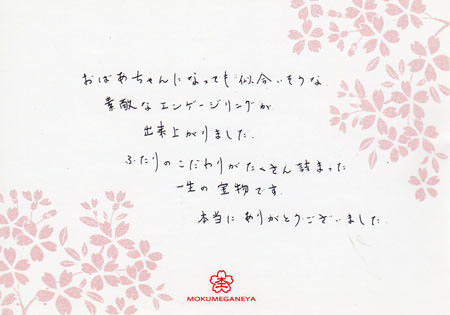 おばあちゃんになっても似合いそうな
素敵なエンゲージリングが
出来上がりました.
ふたりのこだわりがたくさん詰まった
一生の宝物です.
本当にありがとうございました.
MOKUMEGANEYA